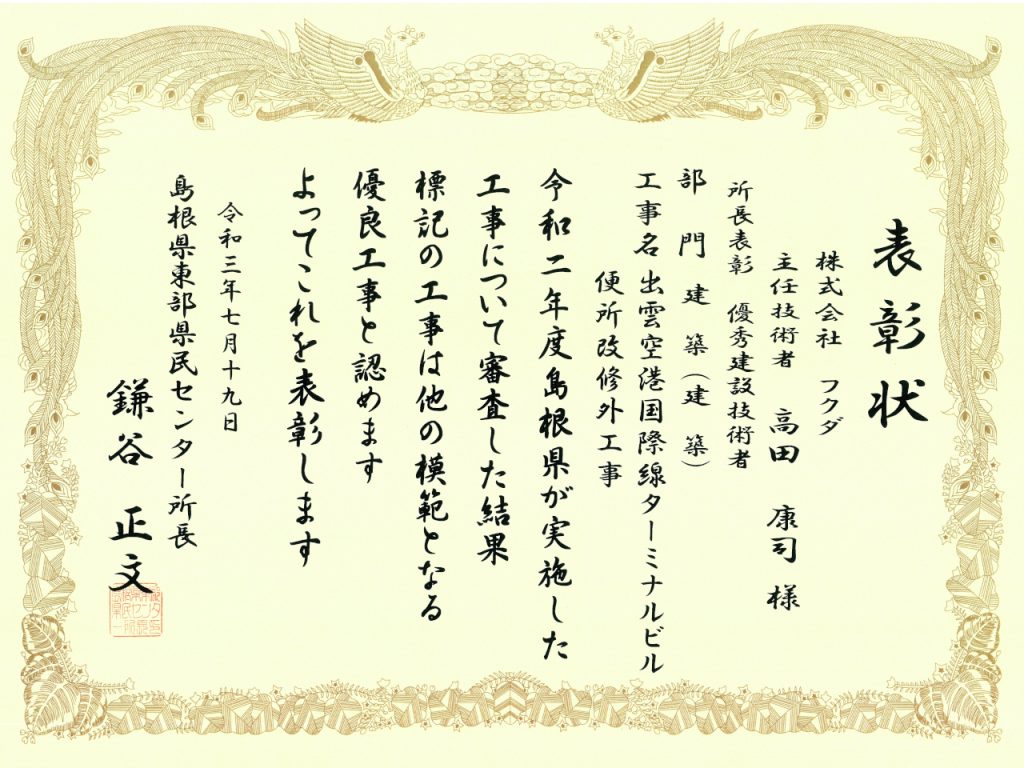 表彰状
株式会社 フクダ
主任技術者 高田 康司 様
所長表彰 優秀建設技術者
部門 建築(建築)
工事名 出雲空港国際線ターミナルビル
便所改修外工事
令和二年度島根県が実施した
工事について審査した結果
標記の工事は他の模範となる
優良工事と認めます
よってこれを表彰します
令和三年七月十九日
島根県東部県民センター所長
鎌谷 正文